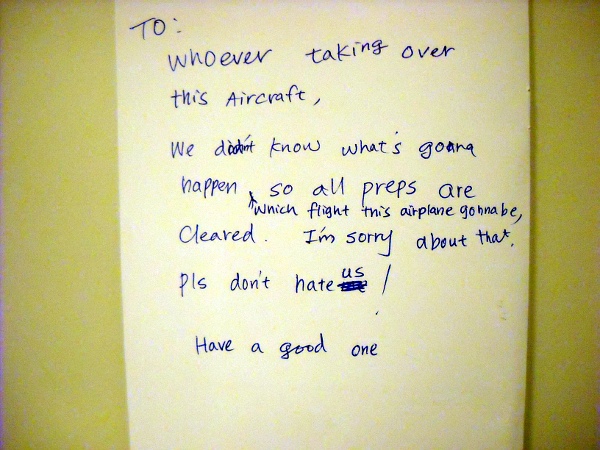 TO:
Whoever taking over
this Aircraft,
We didn't know what's gonna
happen, so all preps are
which flight this airplane gonna be,
Cleared. I'm sorry about that.
Pls don't hate us!
Have a good one